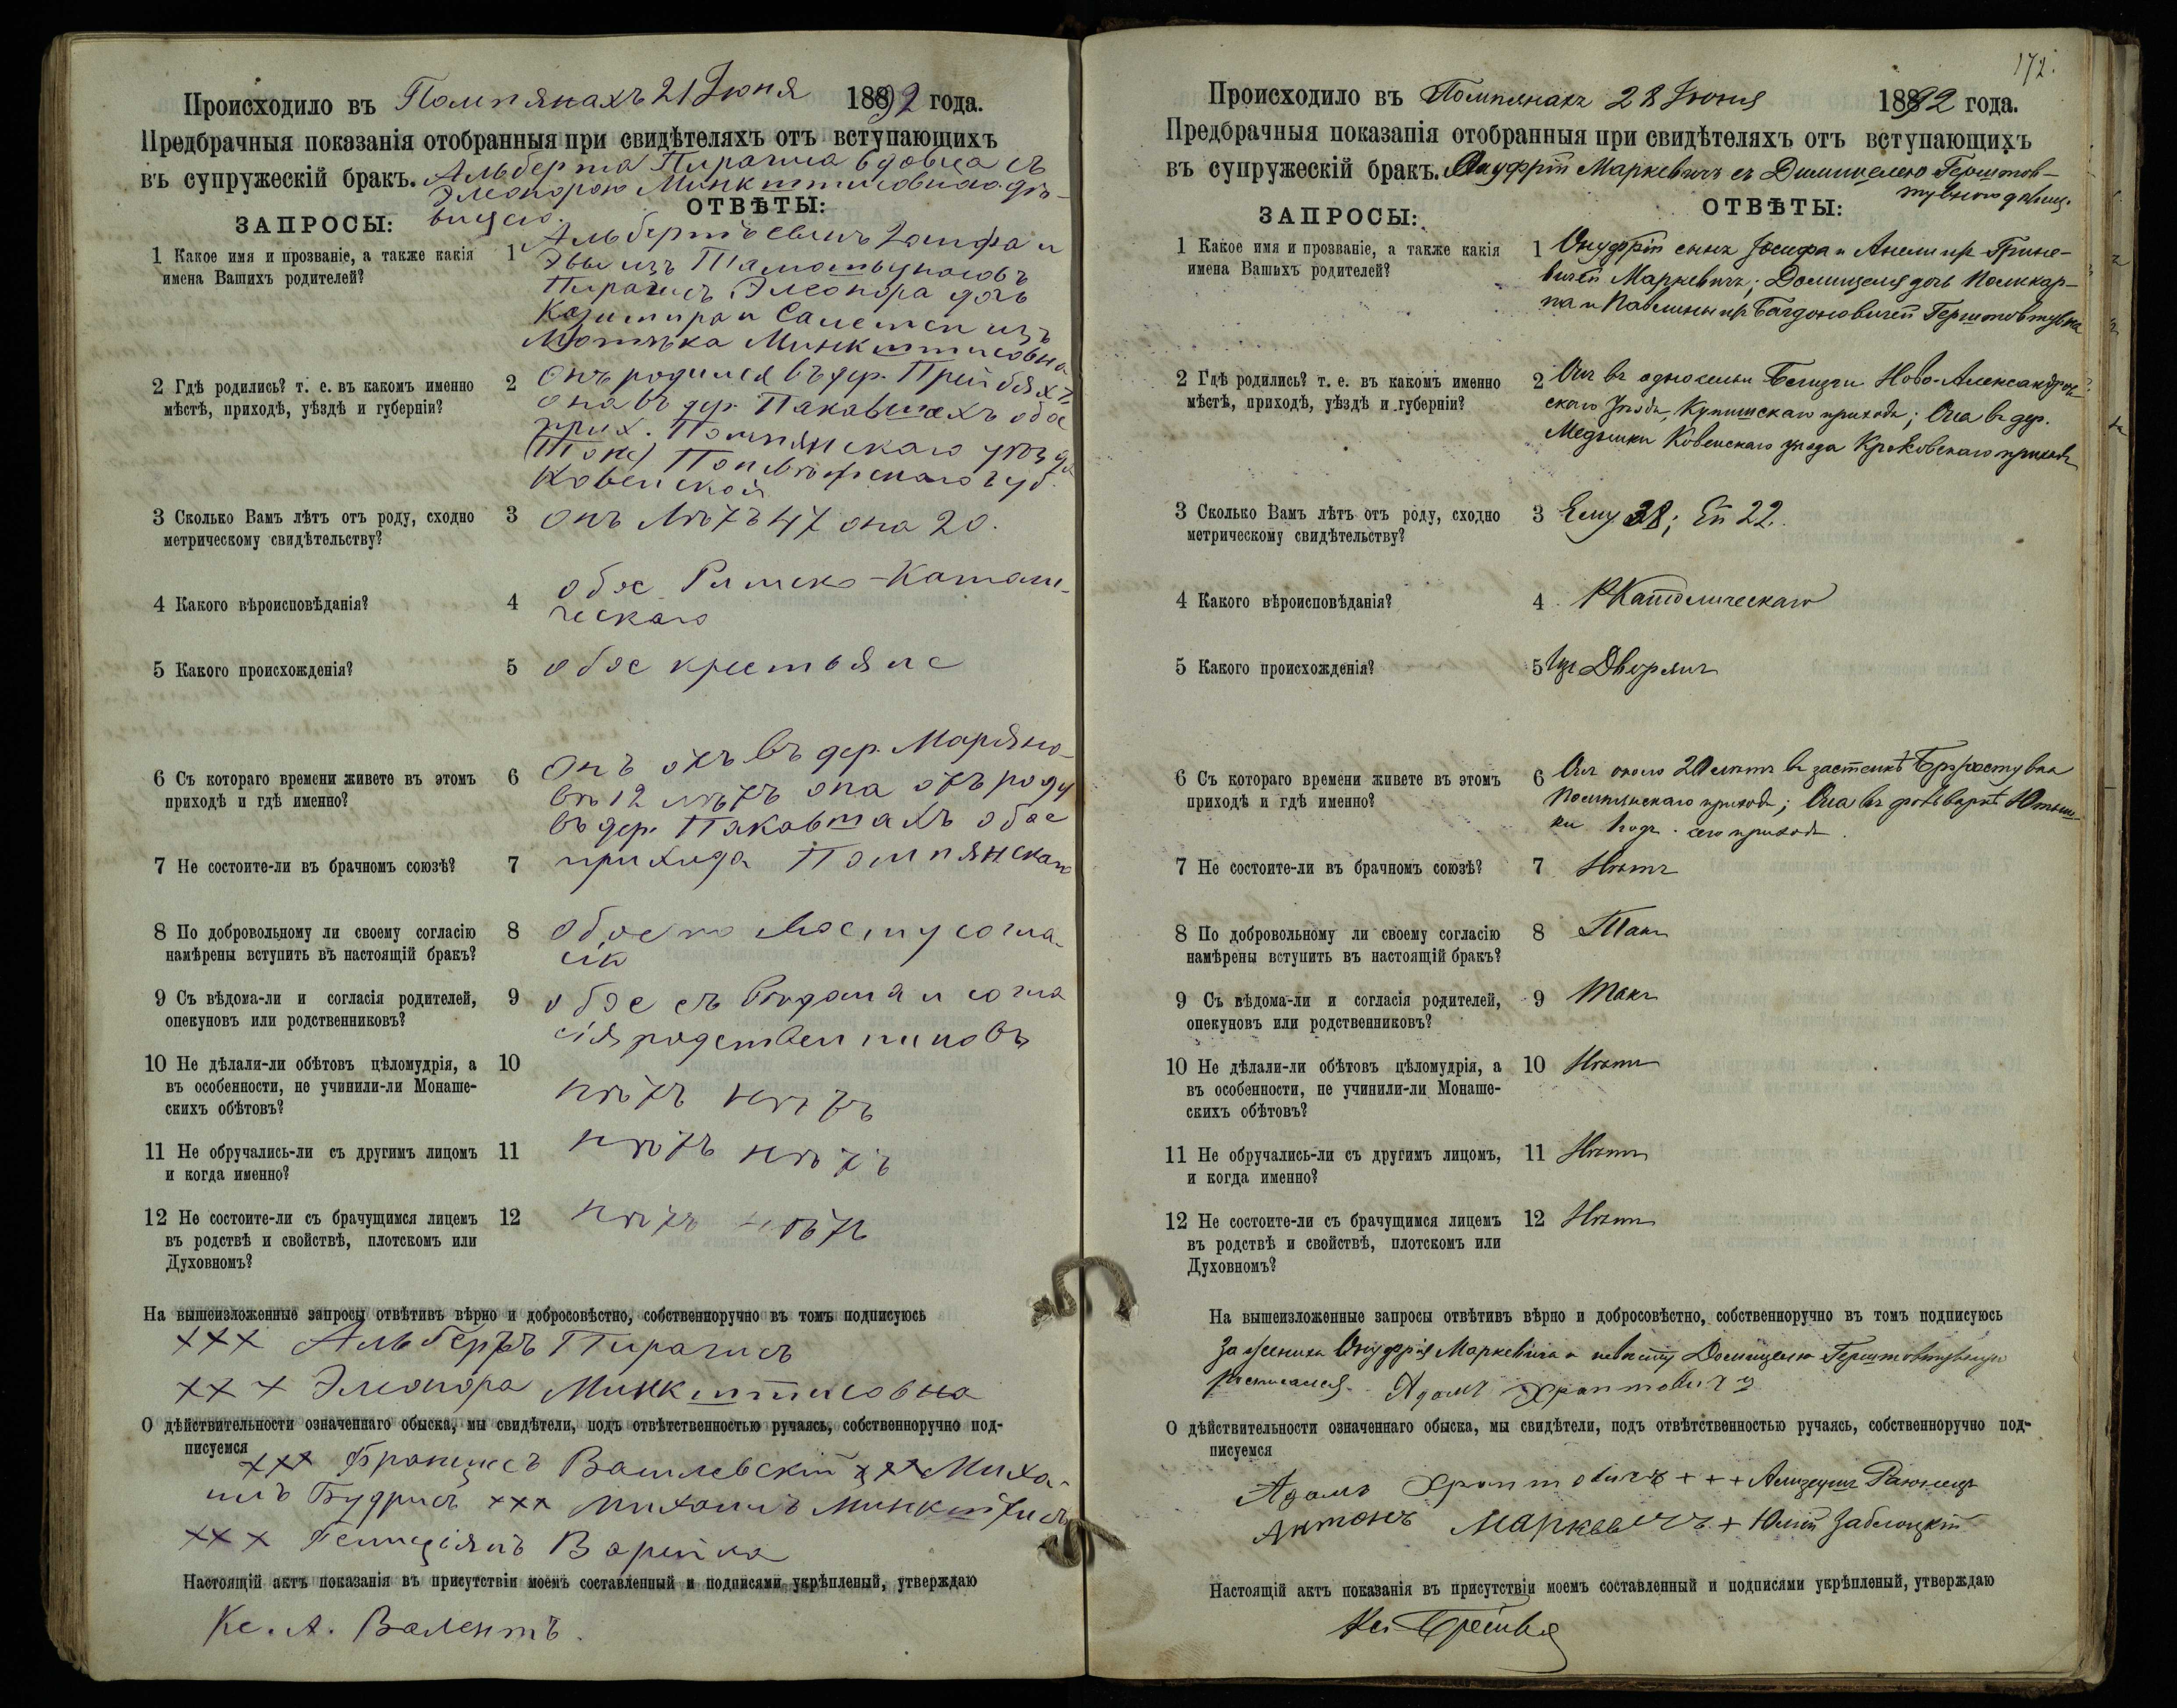 Происходило въ Помпянахъ 21 Іюня 1892 года.
Предбрачныя показанія отобранныя при свидѣтеляхъ отъ вступающихъ
въ супружескій бракъ. Альберта Пирагиса вдовца съ
Элеонорою Минкштисовною дѣ-
вицею.
ЗАПРОСЫ: ОТВѢТЫ:
1 Какое имя и прозваніе, а также какія
имена Вашихъ родителей?
1 Альбертъ сынъ Іосифа и
Эвы изъ
Пирагисъ, Элеонора дочь
Казимира и Саломеи изъ
Минкштисовна
2 Гдѣ родились? т. е. въ какомъ именно
мѣстѣ, приходѣ, уѣздѣ и губерніи?
2 Онъ родился въ дер.
она въ дер. Пакавшахъ обое
прих. Помпянскаго уѣзда
(тоже) Поневѣжскаго губ.
Ковенской
3 Сколько Вамъ лѣтъ отъ роду, сходно
метрическому свидѣтельству?
3 Онъ лѣтъ 47 она 20.
4 Какого вѣроисповѣданія?
4 обое Римско-Католи-
ческаго
5 Какого происхожденія?
5 обое крестьяне
6 Съ котораго времени живете въ этомъ
приходѣ и гдѣ именно?
6 Онъ отъ въ дер. Маріяно-
въ 12 лѣтъ она отъ роду
въ дер. Пакавшахъ обое
прихода Помпянскаго
7 Не состоите-ли въ брачномъ союзѣ?
7
8 По добровольному ли своему согласію
намѣрены вступить въ настоящій бракъ?
8 обое по согла-
сію
9 Съ вѣдома-ли и согласія родителей,
опекуновъ или родственниковъ?
9 обое съ вѣдома и согла
сія родственниковъ
10 Не дѣлали-ли обѣтовъ цѣломудрія, а
въ особенности, не учинили-ли Монаше-
скихъ обѣтовъ?
10 нѣтъ нѣтъ
11 Не обручались-ли съ другимъ лицомъ
и когда именно?
11 нѣтъ нѣтъ
12 Не состоите-ли съ брачущимся лицемъ
въ родствѣ и свойствѣ, плотскомъ или
Духовномъ?
12 нѣтъ нѣтъ
На вышеизложенные запросы отвѣтивъ вѣрно и добросовѣстно, собственноручно въ томъ подписуюсь
+++ Альбертъ Пирагисъ
+++ Элеонора Минкштисовна
О дѣйствительности означеннаго обыска, мы свидѣтели, подъ отвѣтственностью ручаясь, собственноручно под-
писуемся
+++ Францъ Василевскій +++ Миха-
илъ Будрисъ +++ Михаилъ Минкштисъ
+++ Варейка
Настоящій актъ показанія въ присутствіи моемъ составленный и подписями укрѣпленый, утверждаю
Кс. А. Валентъ.
172.
Происходило въ Помпянахъ 28 Іюня 1892 года.
Предбрачныя показанія отобранныя при свидѣтеляхъ отъ вступающихъ
въ супружескій бракъ. Онуфрій Маркевичъ съ Домицелею Герштов-
тувною дѣвиц.
ЗАПРОСЫ: ОТВѢТЫ:
1 Какое имя и прозваніе, а также какія
имена Вашихъ родителей?
1 Онуфрій сынъ Іосифа и Анели ур. Грине-
вичей Маркевичъ; Домицеля дочь Поликар-
па и Павлины ур. Багдоновичей Герштовтувна
2 Гдѣ родились? т. е. въ какомъ именно
мѣстѣ, приходѣ, уѣздѣ и губерніи?
2 Онъ въ односельи Ново-Александров-
скаго уѣзда, Купишскаго прихода; Она въ дер.
Медзишки Ковенскаго уѣзда Кроковскаго прихода
3 Сколько Вамъ лѣтъ отъ роду, сходно
метрическому свидѣтельству?
3 Ему 38; Ей 22.
4 Какого вѣроисповѣданія?
4 Р Католическаго
5 Какого происхожденія?
5 Изъ Дворянъ
6 Съ котораго времени живете въ этомъ
приходѣ и гдѣ именно?
6 Онъ около 20 лѣтъ въ застенкѣ
Помпянскаго прихода; Она въ фольваркѣ
ки 1 годъ сего прихода.
7 Не состоите-ли въ брачномъ союзѣ?
7 Нѣтъ
8 По добровольному ли своему согласію
намѣрены вступить въ настоящій бракъ?
8 Такъ
9 Съ вѣдома-ли и согласія родителей,
опекуновъ или родственниковъ?
9 Такъ
10 Не дѣлали-ли обѣтовъ цѣломудрія, а
въ особенности, не учинили-ли Монаше-
скихъ обѣтовъ?
10 Нѣтъ
11 Не обручались-ли съ другимъ лицомъ,
и когда именно?
11 Нѣтъ
12 Не состоите-ли съ брачущимся лицемъ
въ родствѣ и свойствѣ, плотскомъ или
Духовномъ?
12 Нѣтъ
На вышеизложенные запросы отвѣтивъ вѣрно и добросовѣстно, собственноручно въ томъ подписуюсь
За жениха Онуфрія Маркевича и невѣсту Домицелю Герштовтувну
росписался Адамъ Храптовичъ
О дѣйствительности означеннаго обыска, мы свидѣтели, подъ отвѣтственностью ручаясь, собственноручно под-
писуемся
Адамъ Храптовичъ +++
Антонъ Маркевичъ + Юлій Заблоцкій
Настоящій актъ показанія въ присутствіи моемъ составленный и подписями укрѣпленый, утверждаю
Кс.